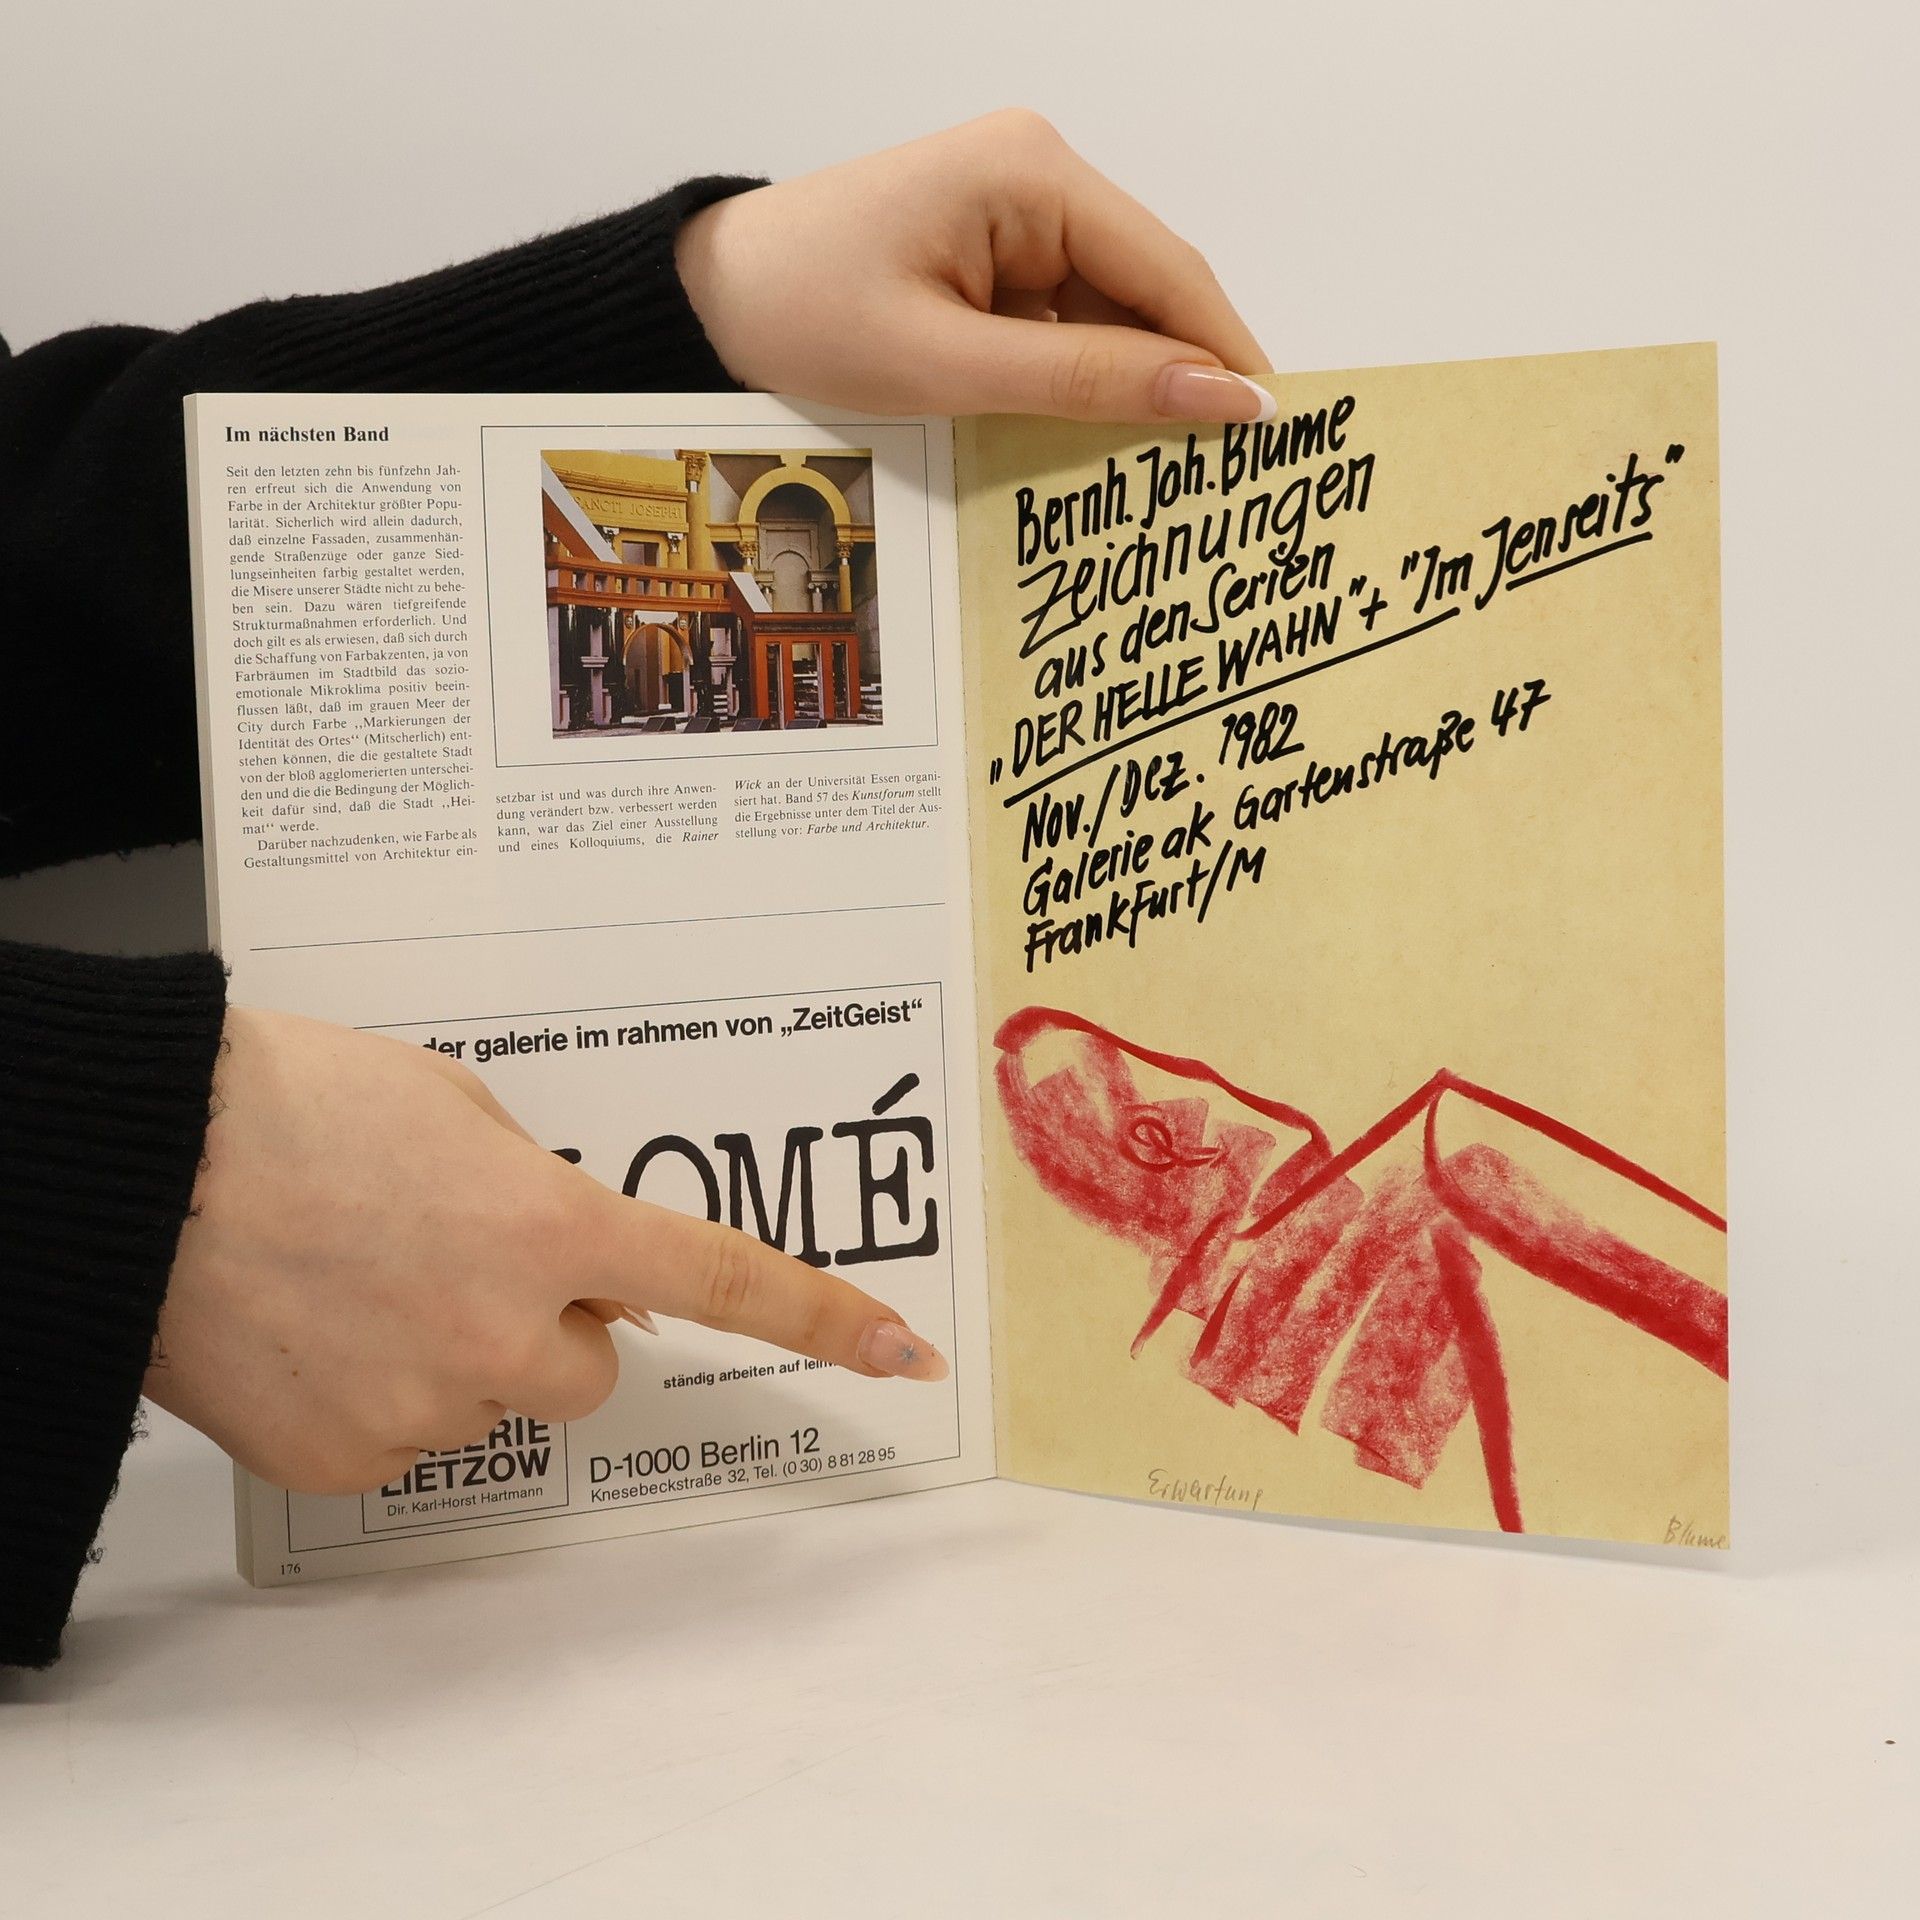 Im nächsten Band
Seit den letzten zehn bis fünfzehn Jah-
ren erfreut sich die Anwendung von
Farbe in der Architektur größter Popu-
larität. Sicherlich wird allein dadurch,
daß einzelne Fassaden, zusammenhän-
gende Straßenzüge oder ganze Sied-
lungseinheiten farbig gestaltet werden,
die Misere unserer Städte nicht zu behe-
ben sein. Dazu wären tiefgreifende
Strukturmaßnahmen erforderlich. Und
doch gilt es als erwiesen, daß sich durch
die Schaffung von Farbakzenten, ja von
Farbräumen im Stadtbild das sozio-
emotionale Mikroklima positiv beein-
flussen läßt, daß im grauen Meer der
City durch Farbe ,,Markierungen der
Identität des Ortes“ (Mitscherlich) ent-
stehen können, die die gestaltete Stadt
von der bloß agglomerierten unterschei-
den und die die Bedingung der Möglich-
keit dafür sind, daß die Stadt ,,Hei-
mat“ werde.
Darüber nachzudenken, wie Farbe als
Gestaltungsmittel von Architektur ein-
SANCTI JOSEPHI
setzbar ist und was durch ihre Anwen-
dung verändert bzw. verbessert werden
kann, war das Ziel einer Ausstellung
und eines Kolloquiums, die Rainer
Wick an der Universität Essen organi-
siert hat. Band 57 des Kunstforum stellt
die Ergebnisse unter dem Titel der Aus-
stellung vor: Farbe und Architektur.
der galerie im rahmen von „ZeitGeist“
OMÉ
ständig arbeiten auf
GALERIE
LIETZOW
Dir. Karl-Horst Hartmann
D-1000 Berlin 12
Knesebeckstraße 32, Tel. (0 30) 8 81 28 95
176
Bernh. Joh. Blume
Zeichnungen
aus den Serien
„DER HELLE WAHN" + "Im Jenseits"
Nov./Dez. 1982
Galerie ak Gartenstraße 47
Frankfurt/M
Erwartung
Blume